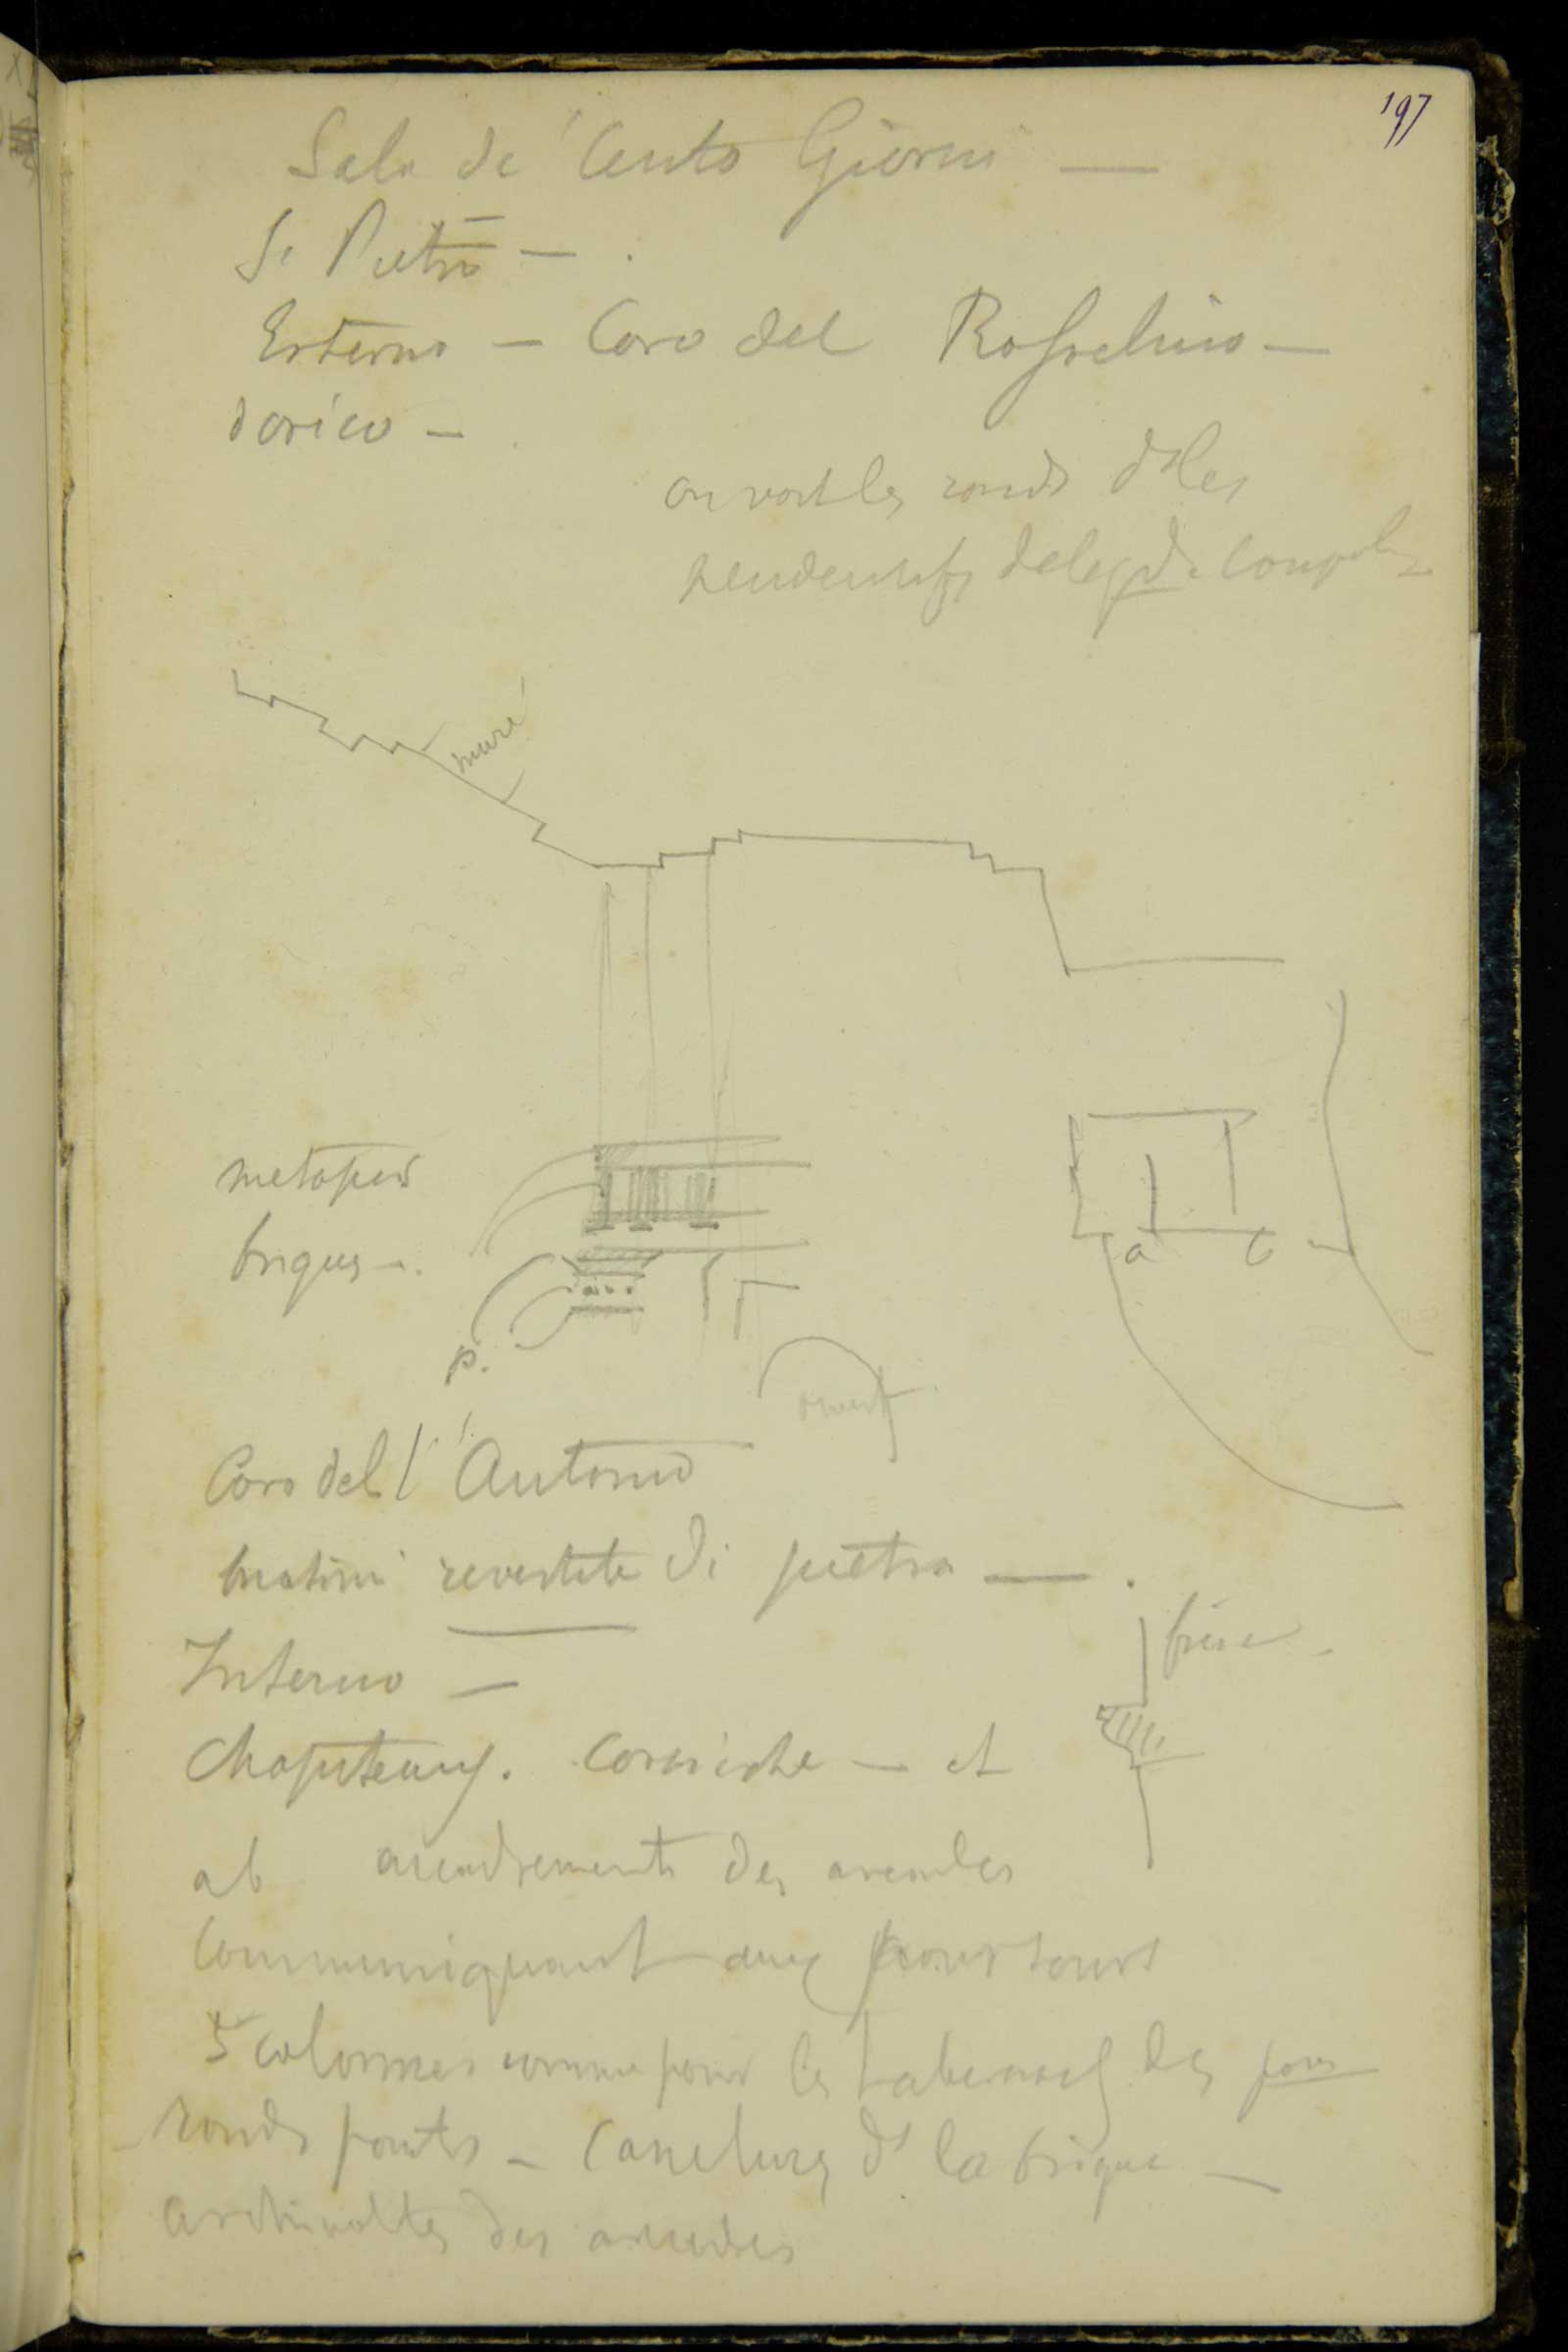 197
Sala de' Cento Giorni —
S. Pietro — .
Esterno — Coro del Rosselino —
dorico —
on voit les ronds ds les
pendentifs de la gde Coupole
muré
metopes
briques — .
a b
p.
ouvert
Coro dell' Antonio
mattoni revestite di pietra — .
frise
Interno —
Chapiteaux. Corniche — et
ab encadrements des arcades
communiquant aux pourtours
5 colonnes comme pour les tabernacl. des
ronds points — Canelures ds la brique —
archivoltes des arcades